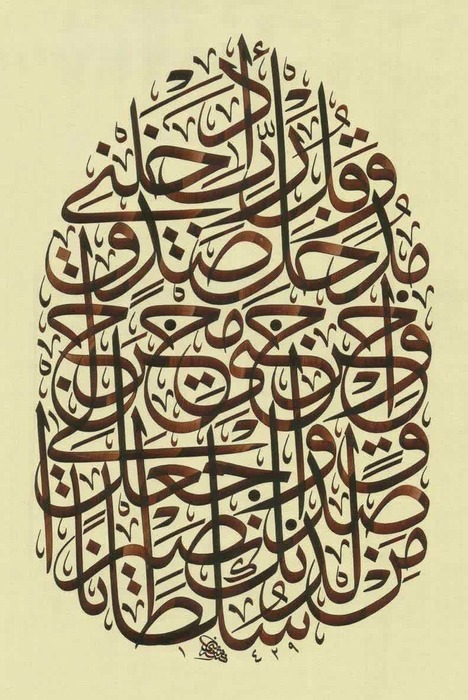 وَقُل رَّبِّ أَدْخِلْنِي
مُدْخَلَ صِدْقٍ
وَأَخْرِجْنِي مُخْرَجَ
صِدْقٍ وَاجْعَل لِّي
مِن لَّدُنكَ سُلْطَانًا نَّصِيرًا
١٤٢٩